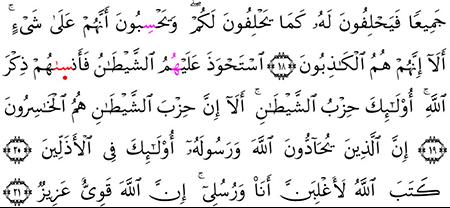 جَمِيعًا فَيَحْلِفُونَ لَهُۥ كَمَا يَحْلِفُونَ لَكُمْ ۖ وَيَحْسِبُونَ أَنَّهُمْ عَلَىٰ شَىْءٍ ۚ
أَلَآ إِنَّهُمْ هُمُ الْكَـٰذِبُونَ ﴿١٨﴾ اسْتَحْوَذَ عَلَيْهُمُ الشَّيْطَـٰنُ فَأَنسَىٰهُمْ ذِكْرَ
اللَّهِ ۚ أُوْلَـٰٓئِكَ حِزْبُ الشَّيْطَـٰنِ ۚ أَلَآ إِنَّ حِزْبَ الشَّيْطَـٰنِ هُمُ الْخَـٰسِرُونَ
﴿١٩﴾ إِنَّ الَّذِينَ يُحَآدُّونَ اللَّهَ وَرَسُولَهُۥٓ أُوْلَـٰٓئِكَ فِى الْأَذَلِّينَ ﴿٢٠﴾
كَتَبَ اللَّهُ لَأَغْلِبَنَّ أَنَا۠ وَرُسُلِىٓ ۚ إِنَّ اللَّهَ قَوِىٌّ عَزِيزٌ ﴿٢١﴾